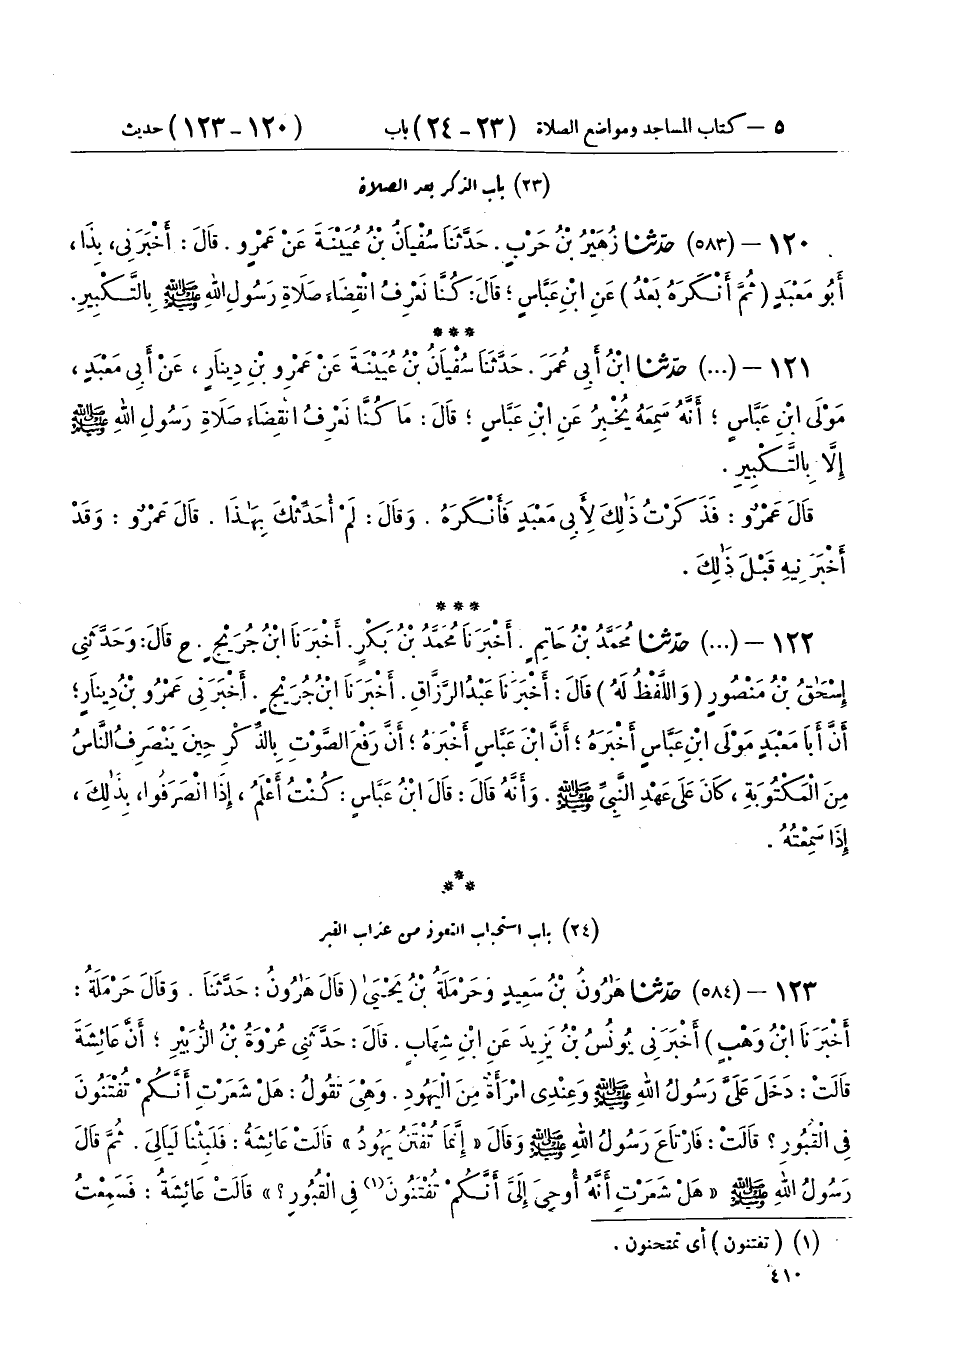 ٥ – كتاب المساجد ومواضع الصلاة (٢٣ – ٢٤) باب (١٢٠ – ١٢٣) حديث
(٢٣) باب الذكر بعد الصلاة
١٢٠ – (٥٨٣) حَدَّثَنَا زُهَيْرُ بْنُ حَرْبٍ . حَدَّثَنَا سُفْيَانُ بْنُ عُيَيْنَةَ عَنْ عَمْرٍو . قَالَ : أَخْبَرَنِي، بِذَا ،
أَبُو مَعْبَدٍ ( ثُمَّ أَنْكَرَهُ بَعْدُ ) عَنِ ابْنِ عَبَّاسٍ ؛ قَالَ: كُنَّا نَعْرِفُ انْقِضَاءَ صَلَاةِ رَسُولِ اللهِ ﷺ بِالتَّكْبِيرِ.
***
١٢١ – (...) حَدَّثَنَا ابْنُ أَبِي عُمَرَ . حَدَّثَنَا سُفْيَانُ بْنُ عُيَيْنَةَ عَنْ عَمْرِو بْنِ دِينَارٍ ، عَنْ أَبِي مَعْبَدٍ ،
مَوْلَى ابْنِ عَبَّاسٍ ؛ أَنَّهُ سَمِعَهُ يُخْبِرُ عَنِ ابْنِ عَبَّاسٍ ؛ قَالَ : مَا كُنَّا نَعْرِفُ انْقِضَاءَ صَلَاةِ رَسُولِ اللهِ ﷺ
إِلَّا بِالتَّكْبِيرِ .
قَالَ عَمْرٌو : فَذَكَرْتُ ذٰلِكَ لِأَبِي مَعْبَدٍ فَأَنْكَرَهُ . وَقَالَ : لَمْ أُحَدِّثْكَ بِهٰذَا . قَالَ عَمْرٌو : وَقَدْ
أَخْبَرَنِيهِ قَبْلَ ذٰلِكَ .
***
١٢٢ – (...) حَدَّثَنَا مُحَمَّدُ بْنُ حَاتِمٍ . أَخْبَرَنَا مُحَمَّدُ بْنُ بَكْرٍ. أَخْبَرَنَا ابْنُ جُرَيْجٍ . ح قَالَ: وَحَدَّثَنِي
إِسْحٰقُ بْنُ مَنْصُورٍ ( وَاللَّفْظُ لَهُ ) قَالَ : أَخْبَرَنَا عَبْدُ الرَّزَّاقِ . أَخْبَرَنَا ابْنُ جُرَيْجٍ . أَخْبَرَنِي عَمْرُو بْنُ دِينَارٍ؛
أَنَّ أَبَا مَعْبَدٍ مَوْلَى ابْنِ عَبَّاسٍ أَخْبَرَهُ ؛ أَنَّ ابْنَ عَبَّاسٍ أَخْبَرَهُ ؛ أَنَّ رَفْعَ الصَّوْتِ بِالذِّكْرِ حِينَ يَنْصَرِفُ النَّاسُ
مِنَ الْمَكْتُوبَةِ ، كَانَ عَلَى عَهْدِ النَّبِيِّ ﷺ . وَأَنَّهُ قَالَ : قَالَ ابْنُ عَبَّاسٍ : كُنْتُ أَعْلَمُ ، إِذَا انْصَرَفُوا، بِذٰلِكَ ،
إِذَا سَمِعْتُهُ .
***
(٢٤) باب استحباب التعوذ من عذاب القبر
١٢٣ – (٥٨٤) حَدَّثَنَا هٰرُونُ بْنُ سَعِيدٍ وَحَرْمَلَةُ بْنُ يَحْيَىٰ ( قَالَ هٰرُونُ : حَدَّثَنَا . وَقَالَ حَرْمَلَةُ :
أَخْبَرَنَا ابْنُ وَهْبٍ ) أَخْبَرَنِي يُونُسُ بْنُ يَزِيدَ عَنِ ابْنِ شِهَابٍ . قَالَ : حَدَّثَنِي عُرْوَةُ بْنُ الزُّبَيْرِ ؛ أَنَّ عَائِشَةَ
قَالَتْ : دَخَلَ عَلَيَّ رَسُولُ اللهِ ﷺ وَعِنْدِي امْرَأَةٌ مِنَ الْيَهُودِ . وَهْيَ تَقُولُ : هَلْ شَعَرْتِ أَنَّكُمْ تُفْتَنُونَ
فِي الْقُبُورِ ؟ قَالَتْ : فَارْتَاعَ رَسُولُ اللهِ ﷺ وَقَالَ « إِنَّمَا تُفْتَنُ يَهُودُ » قَالَتْ عَائِشَةُ : فَلَبِثْنَا لَيَالِيَ . ثُمَّ قَالَ
رَسُولُ اللهِ ﷺ « هَلْ شَعَرْتِ أَنَّهُ أُوحِيَ إِلَيَّ أَنَّكُمْ تُفْتَنُونَ(١) فِي الْقُبُورِ ؟ » قَالَتْ عَائِشَةُ : فَسَمِعْتُ
(١) ( تفتنون ) أى تمتحنون .
٤١٠